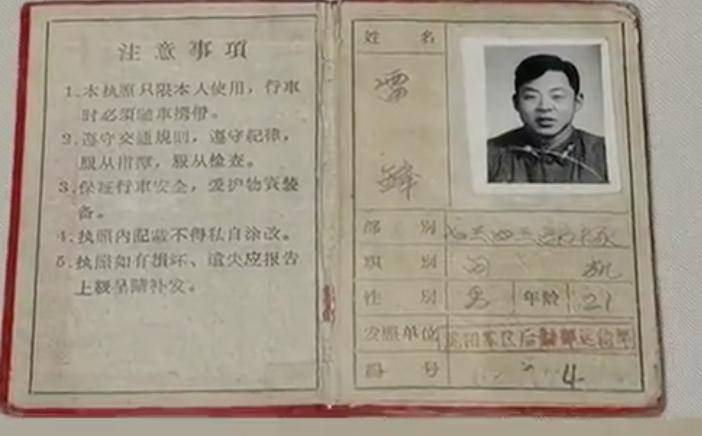 注意事項
1.本执照只限本人使用，行車
时必须随車携带。
2.遵守交通規則，遵守紀律，
服从指揮，服从检查。
3.保証行車安全，爱护物資裝
备。
4.执照內記載不得私自涂改。
5.执照如有損坏、遺失应报告
上級呈請补发。
姓名
雷
锋
部別
職別 司机
性別 男 年龄 21
发照单位 沈阳軍区后勤部运输部
4